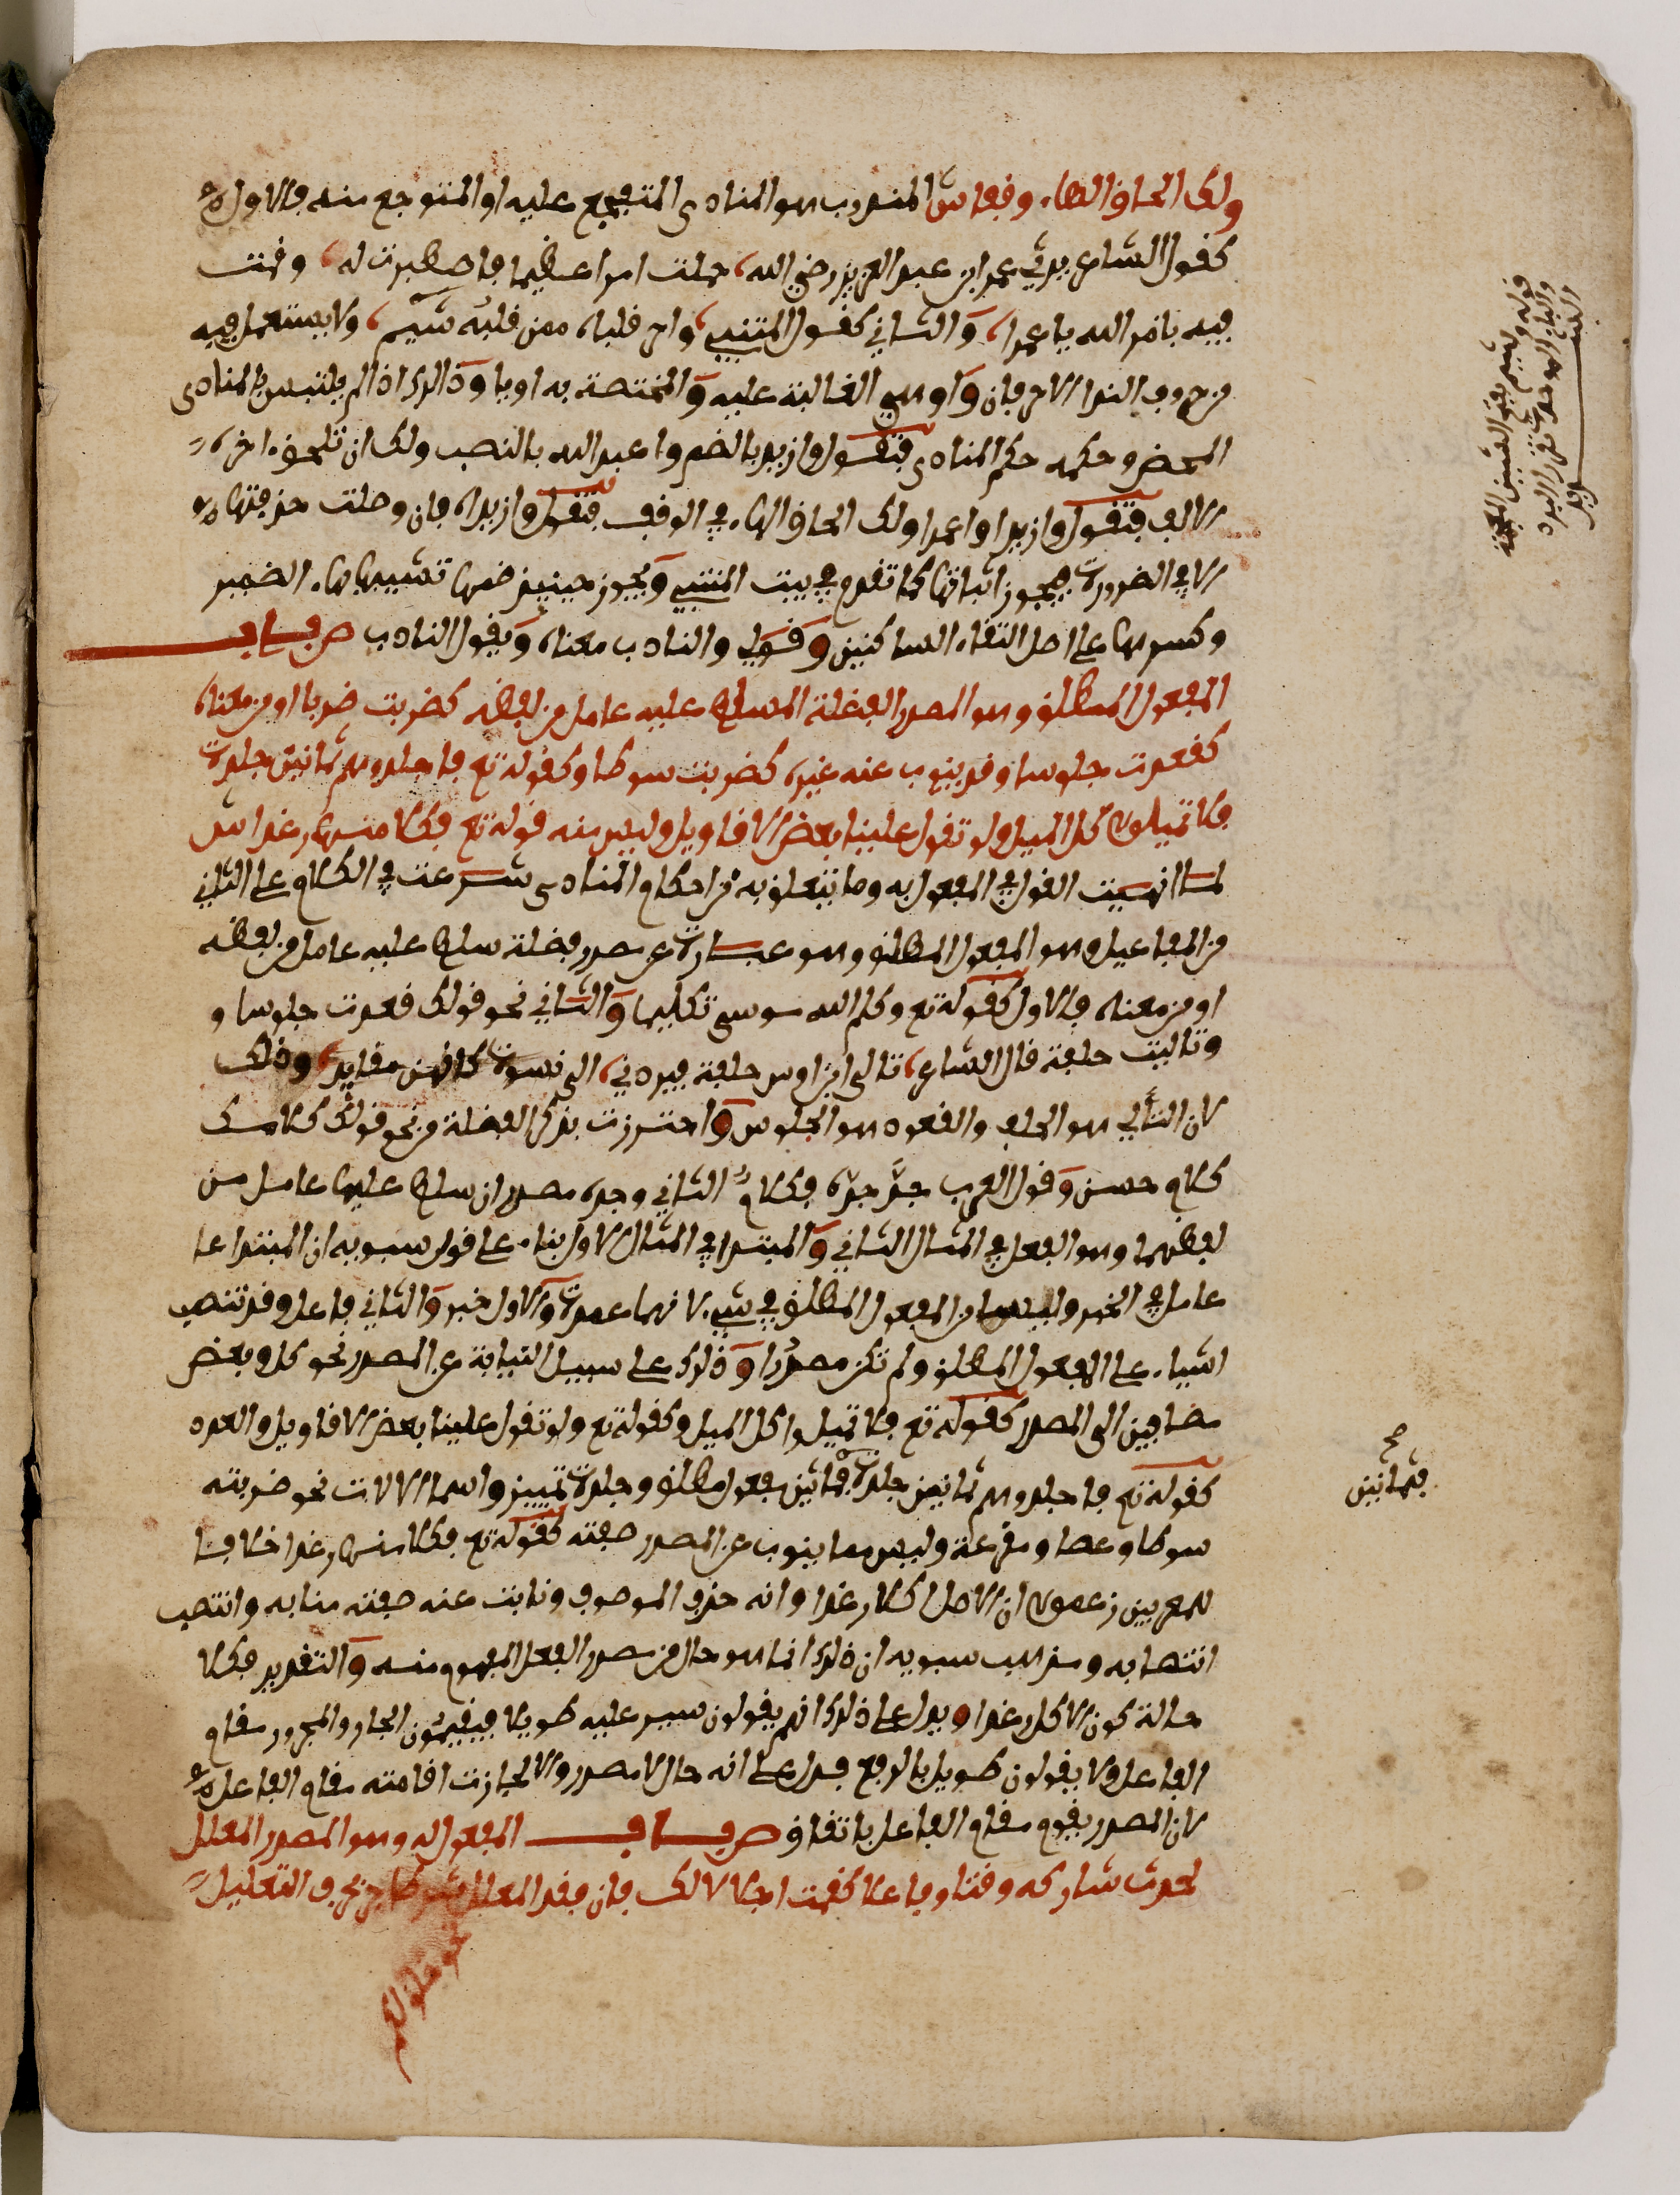 ولك الحاق الهاء وقفا ش المندوب هو المنادى المتفجع عليه او المتوجع منه فالاول
كقول الشاعر يرثي عمر ابن عبد العزيز رضي الله، حملت امرا عظيما فاصطبرت له، وقمت
فيه بامر الله يا عمرا، والثاني كقول المتنبي، واحر قلباه ممن قلبه شبم، ولا يستعمل فيه
من حروف الندا الا حرفان وا وهي الغالبة عليه والمختصة به او يا وذلك اذا لم يلتبس بالمنادى
المحض وحكمه حكم المنادى فتقول وا زيد بالضم وا عبد الله بالنصب ولك ان تلحق اخره
الالف فتقول وا زيدا وا عمرا ولك الحاق الهاء في الوقف فتقول وا زيداه فان وصلت حذفتها
الا في الضرورة فيجوز اثباتها كما تقدم في بيت المتنبي ويجوز حينيذ ضمها تشبيها بهاء الضمير
وكسرها على اصل التقاء الساكنين وقولي والنادب معناه ويقول النادب ص باب
المفعول المطلق وهو المصدر الفضلة المسلط عليه عامل من لفظه كضربت ضربا او من معناه
كقعدت جلوسا وقد ينوب عنه غيره كضربت سوطا وكقوله تع فاجلدوهم ثمانين جلدة
فلا تميلوا كل الميل ولو تقول علينا بعض الاقاويل وليس منه قوله تع فكلا منها رغدا ش
لما انهيت القول في المفعول به وما يتعلق به من احكام المنادى شرعت في الكلام على الثاني
من المفاعيل وهو المفعول المطلق وهو عبارة عن مصدر فضلة سلط عليه عامل من لفظه
او من معناه فالاول كقوله تع وكلم الله موسى تكليما والثاني نحو قولك قعدت جلوسا و
وتاليت حلفة قال الشاعر، تالى ابن اوس حلفة ليردني، الى نسوة كانهن مفايد، وذلك
لان التألي هو الحلف والقعود هو الجلوس واحترزت بذكر الفضلة من نحو قولك كلامك
كلام حسن وقول العرب جد جده فكلام الثاني وجده مصدران سلط عليهما عامل من
لفظهما وهو الفعل في المثال الثاني والمبتدا في المثال الاول بناء على قول سيبويه ان المبتدا عا
عامل في الخبر وليسا من المفعول المطلق في شيء لانهما عمدة والاول خبر والثاني فاعل وقد تنصب
اشياء على المفعول المطلق ولم تكن مصدرا وذلك على سبيل النيابة عن المصدر نحو كل وبعض
مضافين الى المصدر كقوله تع فلا تميلوا كل الميل وكقوله تع ولو تقول علينا بعض الاقاويل والعدد
كقوله تع فاجلدوهم ثمانين جلدة فثمانين مفعول مطلق وجلدة تمييز واسما الالات نحو ضربته
سوطا وعصا ومقرعة وليس مما ينوب عن المصدر صفته كقوله تع فكلا منها رغدا خلافا
للمعربين زعموا ان الاصل اكلا رغدا وانه حذف الموصوف ونابت عنه صفته منابه وانتصب
انتصابه ومذهب سيبويه ان ذلك انما هو حال من مصدر الفعل المفهوم منه والتقدير فكلا
حالة كون الاكل رغدا ويدل على ذلك انهم يقولون سير عليه طويلا فيقيمون الجار والمجرور مقام
الفاعل ولا يقولون طويل بالرفع فدل على انه حال لا مصدر والا لجازت اقامته مقام الفاعل
لان المصدر يقوم مقام الفاعل باتفاق ص باب المفعول له وهو المصدر المعلل
لحدث شاركه وقتا وفاعلا كقمت اجلالا لك فان فقد المعلل شرطا جر بحرف التعليل
نحو خلق لكم
قوله شبم بفتح الشين المعجمة
فثمانين
صح